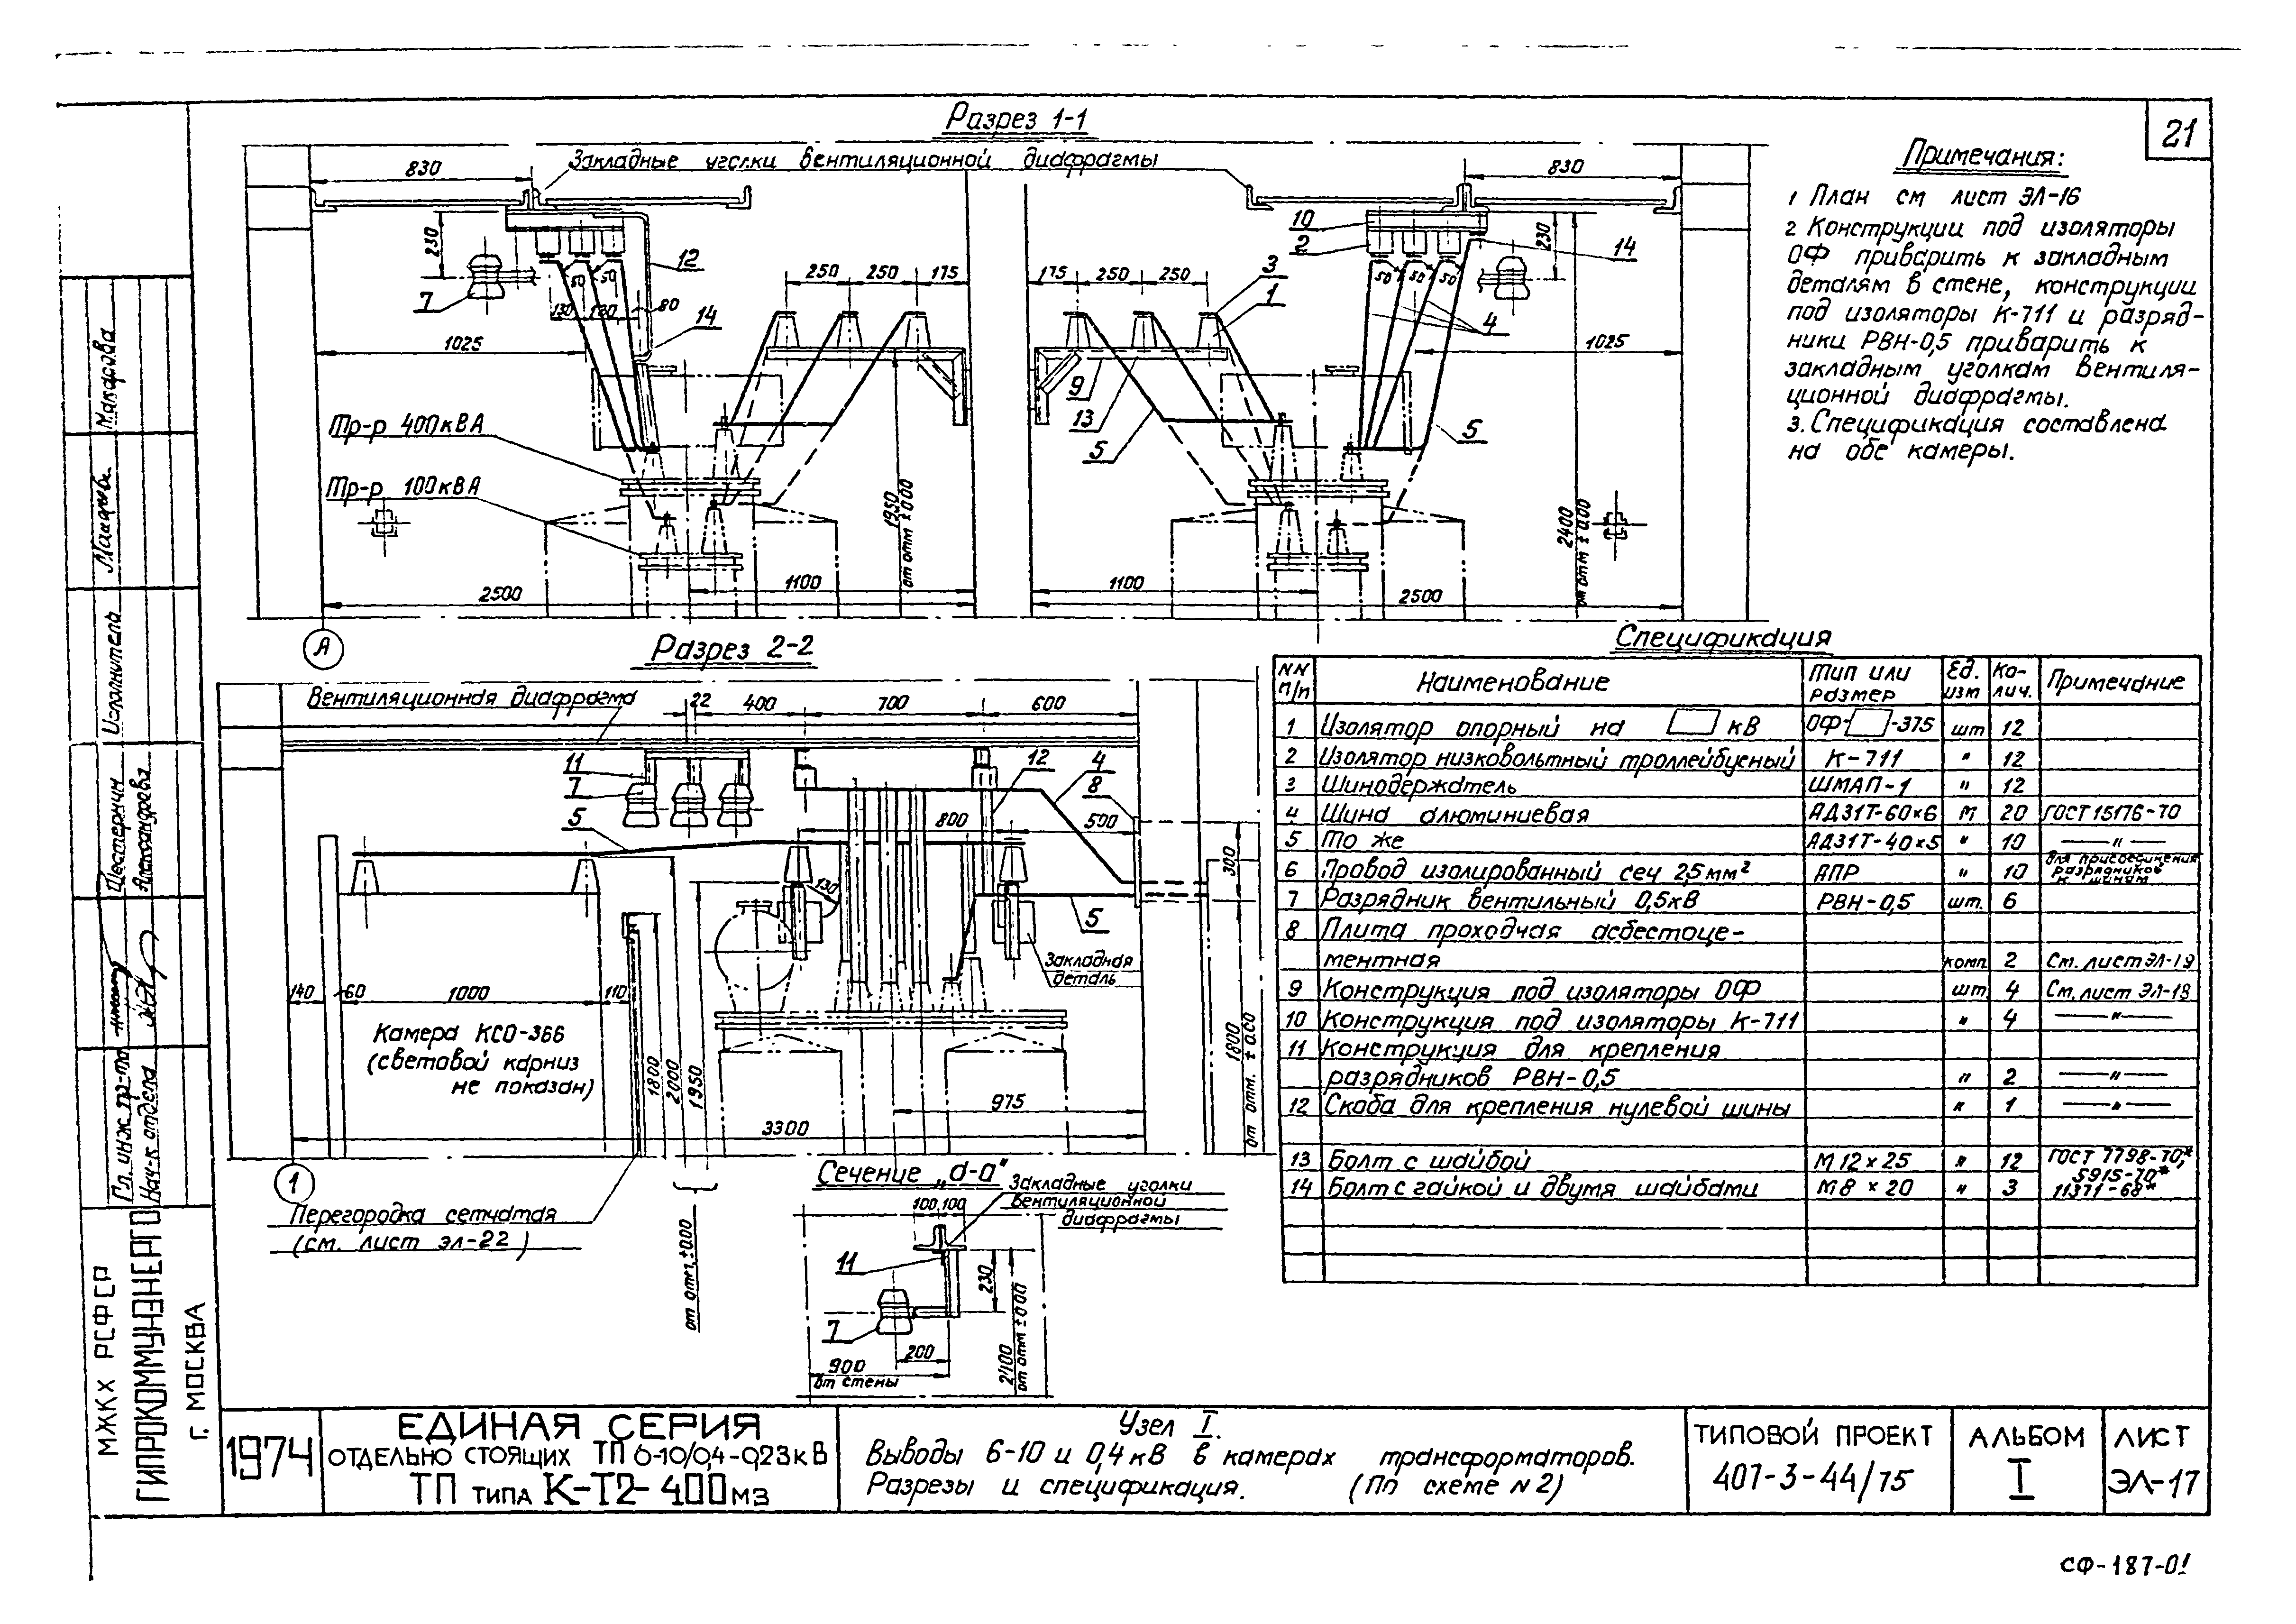 21
Разрез 1-1
Закладные уголки вентиляционной диафрагмы
830
830
230
230
10
2
12
14
14
7
50
50
50
50
50
130
80
250
250
175
175
250
250
3
1
4
1025
1025
9
13
5
5
Тр-р 400кВА
Тр-р 100кВА
1950
от отм ±0.00
2400
от отм ±0.00
1100
1100
2500
2500
А
Примечания:
1 План см лист ЭЛ-16
2 Конструкции под изоляторы
ОФ приварить к закладным
деталям в стене, конструкции
под изоляторы К-711 и разряд-
ники РВН-0,5 приварить к
закладным уголкам вентиля-
ционной диафрагмы.
3. Спецификация составлена
на обе камеры.
Разрез 2-2
Вентиляционная диафрагма
22
400
700
600
11
7
5
12
4
8
800
500
300
130
5
Закладная
деталь
140
60
1000
110
Камера КСО-366
(световой карниз
не показан)
1800
2000
1950
от отм. ±0.00
975
3300
1800
от отм. ±0.00
1
Перегородка сетчатая
(см. лист эл-22)
Сечение „а-а"
Закладные уголки
вентиляционной
диафрагмы
100
100
11
7
230
200
900
от стены
2400
от отм ±0.00
Спецификация
NN п/п Наименование Тип или размер Ед. изм Ко-лич. Примечание
1 Изолятор опорный на кВ ОФ- -375 шт 12
2 Изолятор низковольтный троллейбусный К-711 " 12
3 Шинодержатель ШМАП-1 " 12
4 Шина алюминиевая АД31Т-60×6 М 20 ГОСТ 15176-70
5 То же АД31Т-40×5 " 10 —"—
6 Провод изолированный сеч 2,5мм² АПР " 10 для присоединения разрядников к шинам
7 Разрядник вентильный 0,5кВ РВН-0,5 шт. 6
8 Плита проходная асбестоце-
ментная комп 2 См. лист ЭЛ-19
9 Конструкция под изоляторы ОФ шт 4 См. лист ЭЛ-18
10 Конструкция под изоляторы К-711 " 4 —"—
11 Конструкция для крепления
разрядников РВН-0,5 " 2 —"—
12 Скоба для крепления нулевой шины " 1 —"—
13 Болт с шайбой М12×25 " 12 ГОСТ 7798-70,*
5915-70*
14 Болт с гайкой и двумя шайбами М8×20 " 3 11371-68*
Макарова
Исполнитель
Шестернин
Александрова
Гл. инж. пр-та
Нач-к отдела
МЖКХ РСФСР
ГИПРОКОММУНЭНЕРГО
г. МОСКВА
1974
ЕДИНАЯ СЕРИЯ
ОТДЕЛЬНО СТОЯЩИХ ТП 6-10/0,4-0,23кВ
ТП ТИПА К-Т2-400МЗ
Узел I.
Выводы 6-10 и 0,4кВ в камерах трансформаторов.
Разрезы и спецификация. (По схеме №2)
ТИПОВОЙ ПРОЕКТ
407-3-44/75
АЛЬБОМ
I
ЛИСТ
ЭЛ-17
СФ-187-01